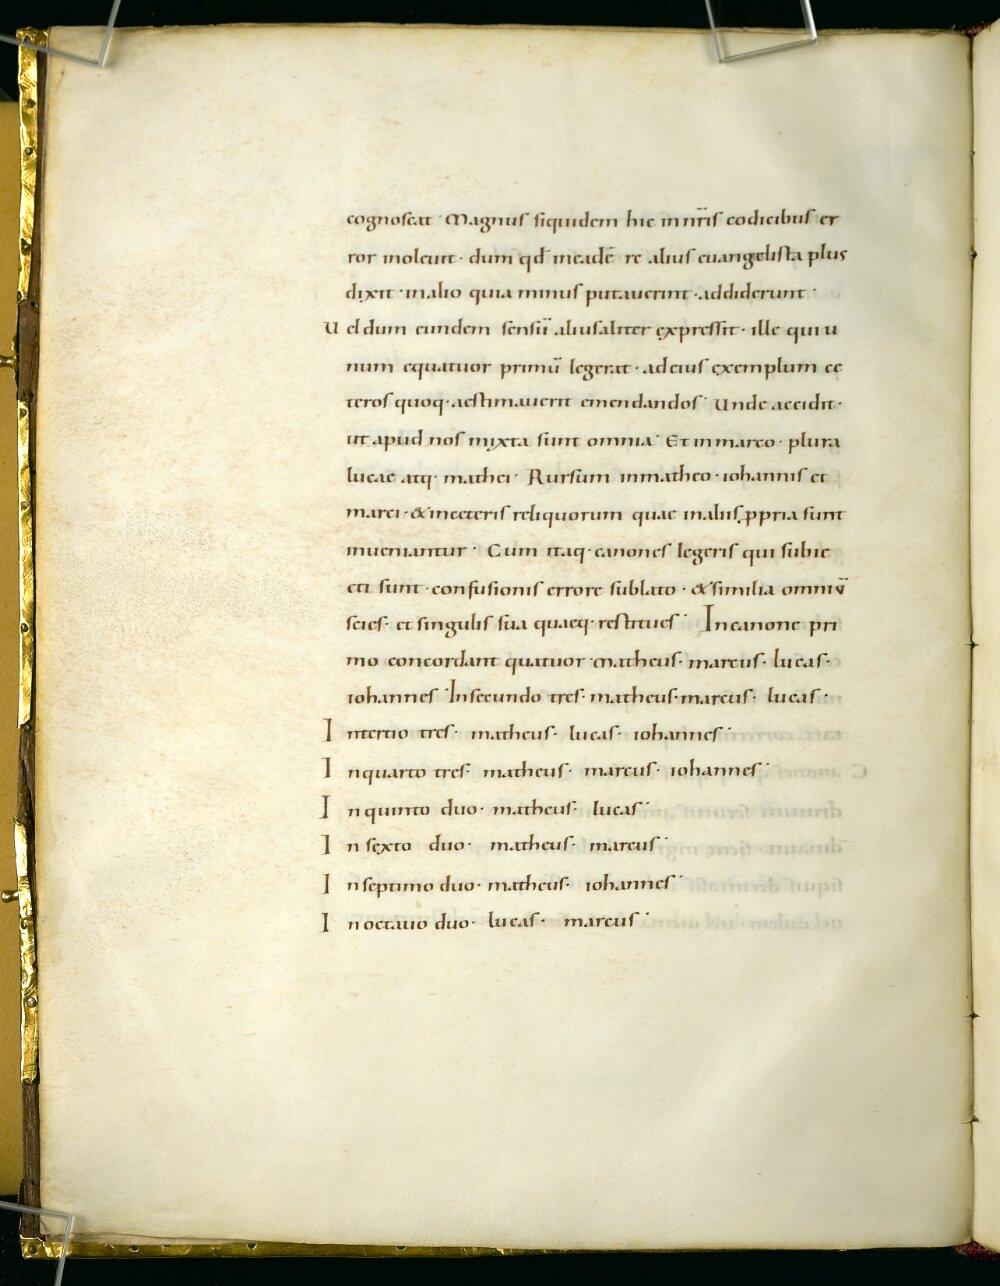 cognoscat · Magnus siquidem hic in nr̄is codicibus er
ror inoleuit · dum qđ ineadē re alius euangelista plus
dixit · inalio quia minus putauerint · addiderunt ·
Uel dum eundem sensū aliusaliter expressit · ille qui u
num equatuor primū legerat · adeius exemplum ce
teros quoq· aestimauerit emendandos · Unde accidit ·
ut apud nos mixta sunt omnia · Et inmarco · plura
lucae atq· mathei · Rursum inmatheo · iohannis et
marci · & inceteris reliquorum quae inaliis ꝓpria sunt
inueniantur · Cum itaq· canones legeris qui subie
cti sunt · confusionis errore sublato · & similia omniū
scies · et singulis sua quaeq· restitues · Incanone pri
mo concordant quatuor · matheus · marcus · lucas ·
iohannes · Insecundo tres · matheus · marcus · lucas ·
Intertio tres · matheus · lucas · iohannes ·
Inquarto tres · matheus · marcus · iohannes ·
Inquinto duo · matheus · lucas ·
In sexto duo · matheus · marcus ·
Inseptimo duo · matheus · iohannes ·
Inoctauo duo · lucas · marcus ·